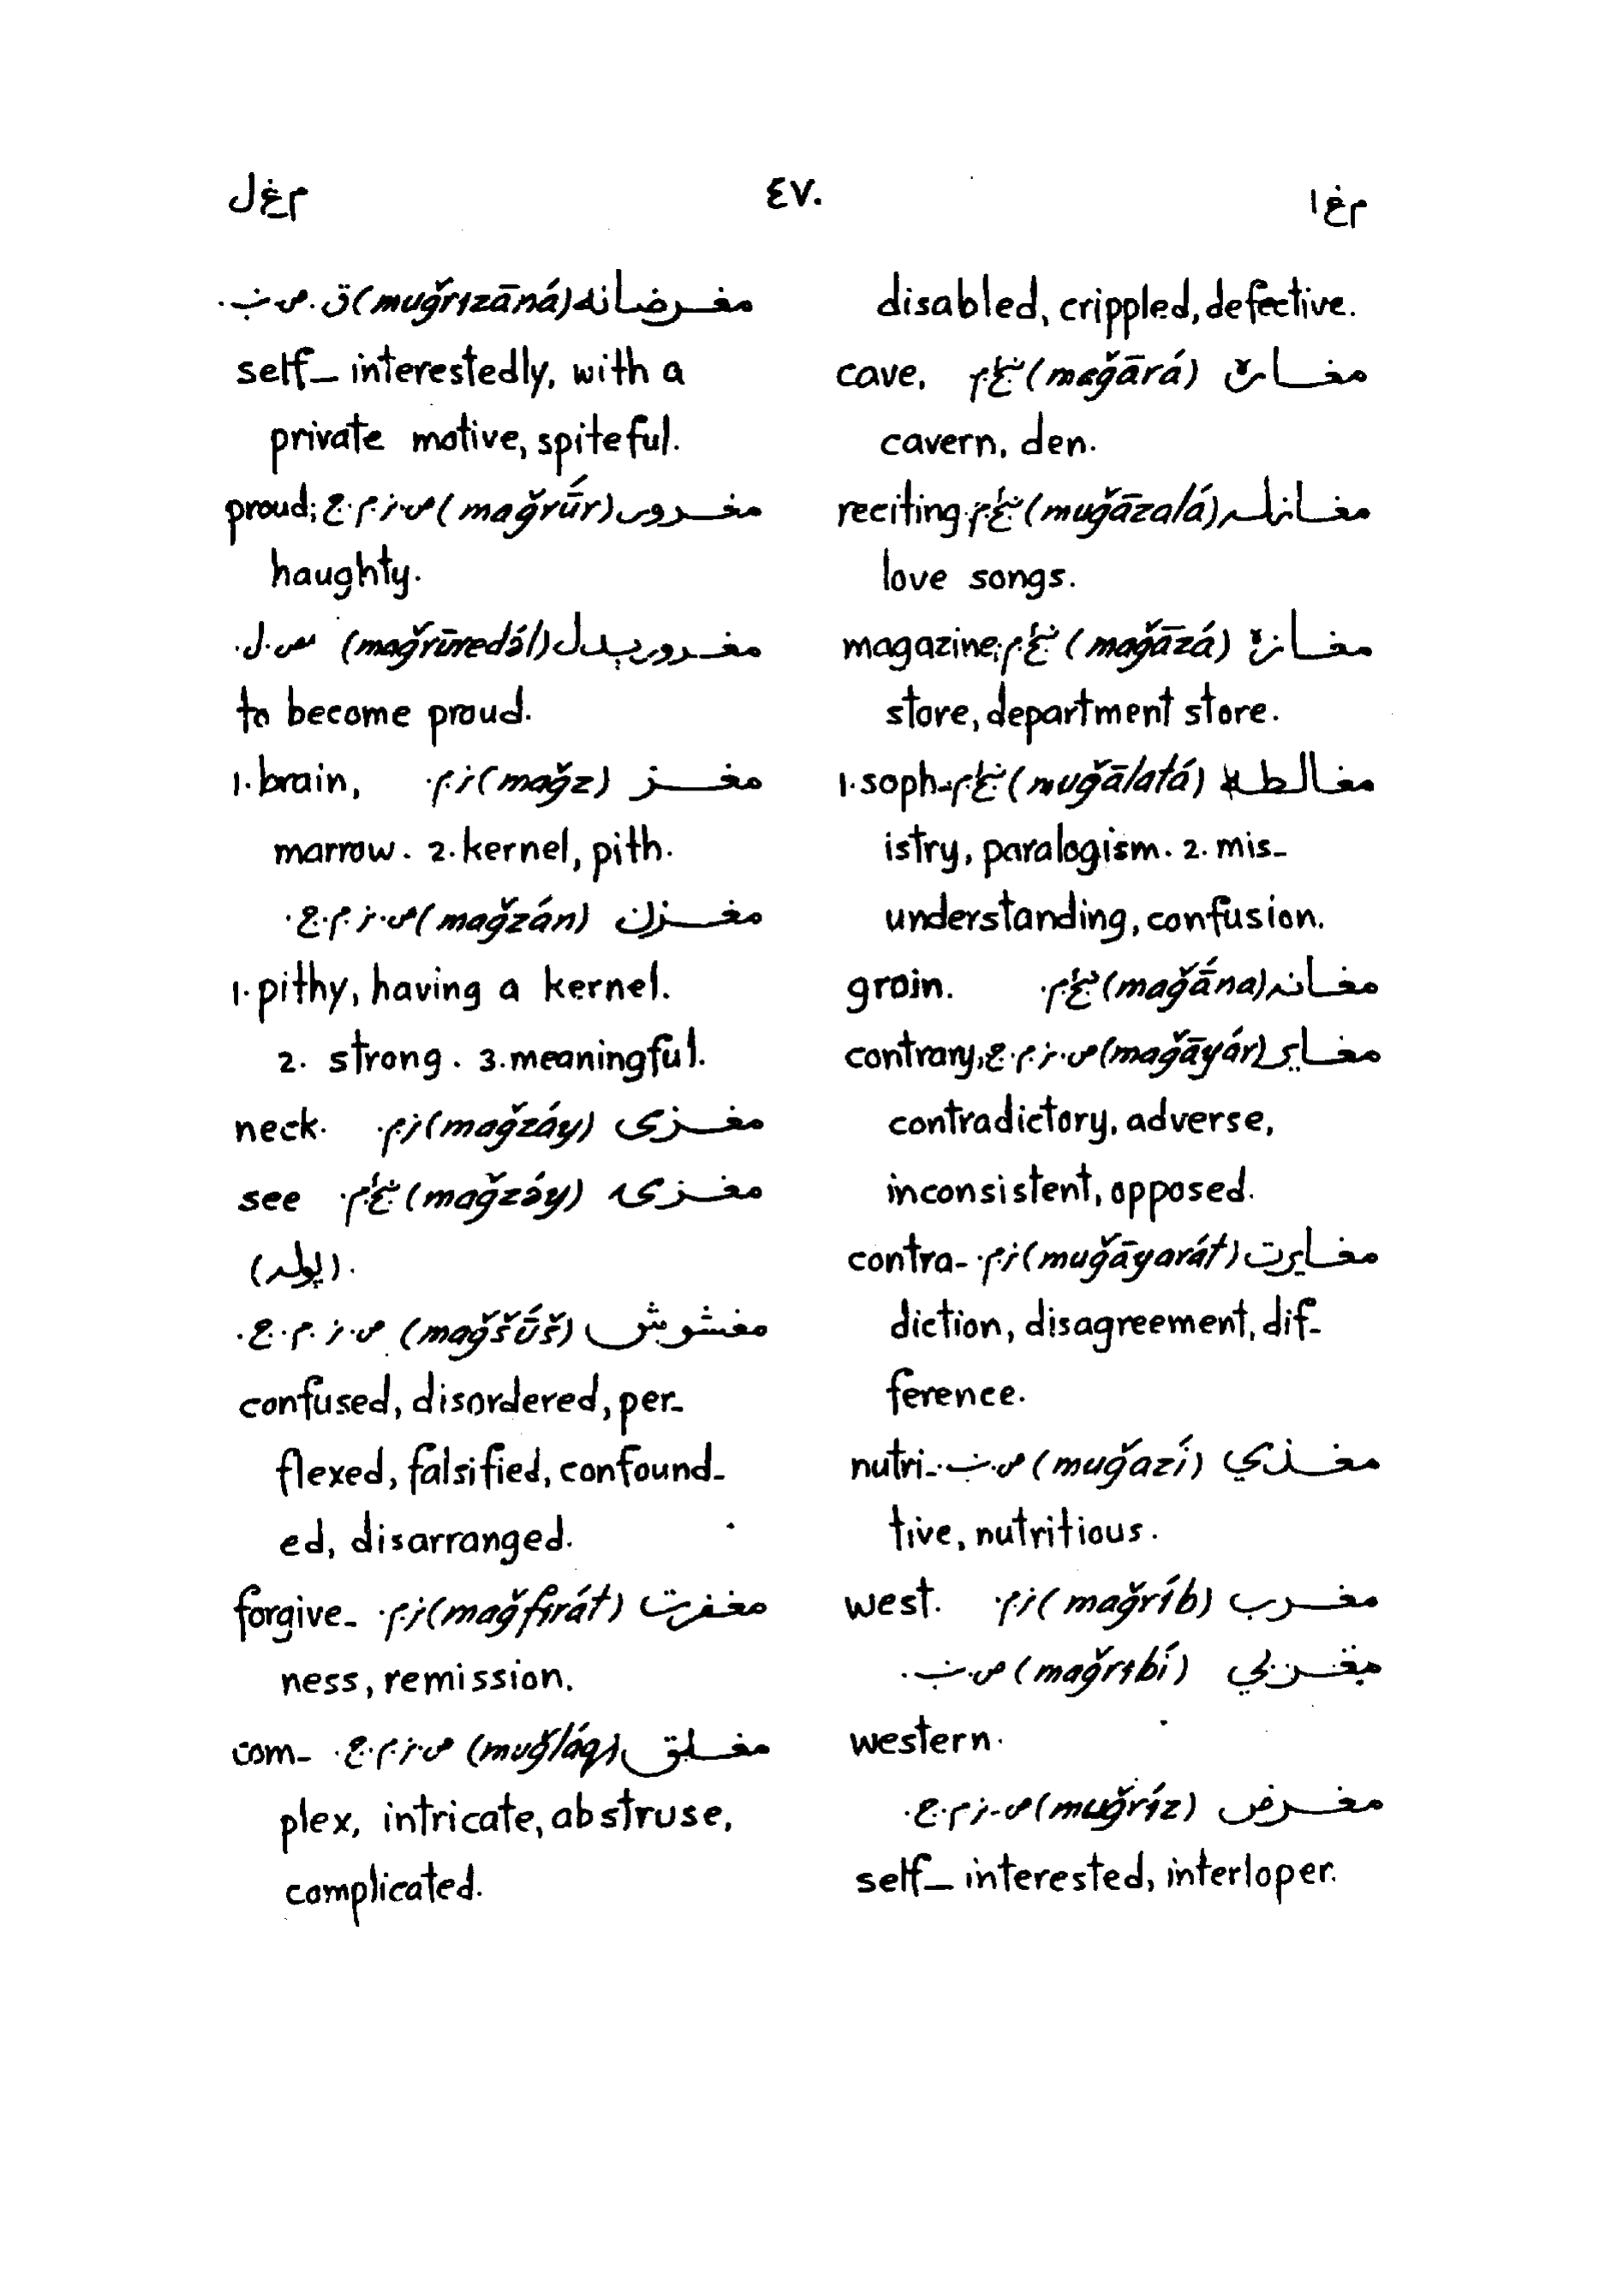 م غ ا
٤٧٠
م غ ل
disabled, crippled, defective.
مغارة (mağārá) cave,
cavern, den.
مغازله (muğāzalá) reciting
love songs.
مغازة (mağāzá) magazine;
store, department store.
مغالطه (muğālatá) 1. soph-
istry, paralogism. 2. mis-
understanding, confusion.
مغانه (mağā́na) grain.
مغاير (mağāyár) ص.ز.م.ج. contrary,
contradictory, adverse,
inconsistent, opposed.
مغايرت (muğāyarát) ز.م. contra-
diction, disagreement, dif-
ference.
مغذي (muğazí) ص.ن. nutri-
tive, nutritious.
مغرب (mağríb) ز.م. west.
مغربي (mağrıbí) ص.ن.
western.
مغرض (muğríz) ص.ز.م.ج.
self- interested, interloper.
مغرضانه (muğrızāná) ق. ص.ن.
self- interestedly, with a
private motive, spiteful.
مغرور (mağrū́r) ص.ز.م.ج. proud;
haughty.
مغروريدل (mağrūredә́l) ص.ل.
to become proud.
مغز (mağz) ز.م. 1. brain,
marrow. 2. kernel, pith.
مغزن (mağzán) ص.ز.م.ج.
1. pithy, having a kernel.
2. strong. 3. meaningful.
مغزى (mağzáy) ز.م. neck.
مغزۍ (mağzә́y) see
(پوله).
مغشوش (mağšū́š) ص.ز.م.ج.
confused, disordered, per-
flexed, falsified, confound-
ed, disarranged.
مغفرت (mağfırát) ز.م. forgive-
ness, remission.
مغلق (muğláq) ص.ز.م.ج. com-
plex, intricate, abstruse,
complicated.